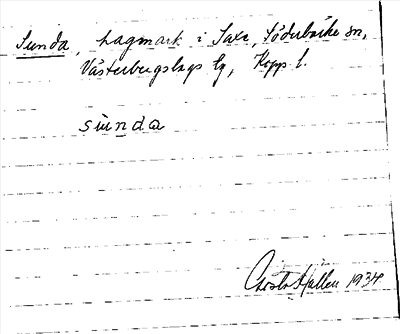 Sunda, hagmark i Saxe, Söderbärke sn,
Västerbergslags tg, Kopp l.
sunda
Hallén 1934